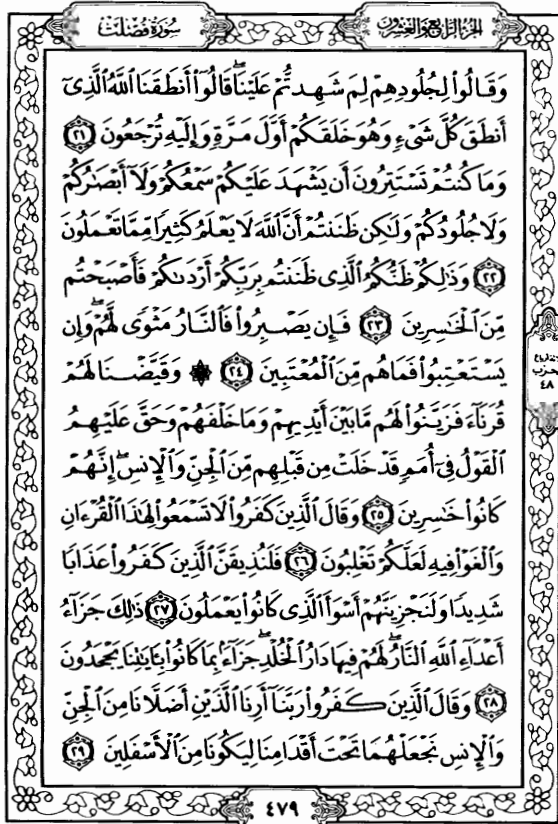 الجزء الرابع والعشرون
سورة فصلت
وَقَالُوا۟ لِجُلُودِهِمْ لِمَ شَهِدتُّمْ عَلَيْنَا ۖ قَالُوٓا۟ أَنطَقَنَا ٱللَّهُ ٱلَّذِىٓ
أَنطَقَ كُلَّ شَىْءٍ وَهُوَ خَلَقَكُمْ أَوَّلَ مَرَّةٍ وَإِلَيْهِ تُرْجَعُونَ ٢١
وَمَا كُنتُمْ تَسْتَتِرُونَ أَن يَشْهَدَ عَلَيْكُمْ سَمْعُكُمْ وَلَآ أَبْصَٰرُكُمْ
وَلَا جُلُودُكُمْ وَلَٰكِن ظَنَنتُمْ أَنَّ ٱللَّهَ لَا يَعْلَمُ كَثِيرًا مِّمَّا تَعْمَلُونَ
٢٢ وَذَٰلِكُمْ ظَنُّكُمُ ٱلَّذِى ظَنَنتُم بِرَبِّكُمْ أَرْدَىٰكُمْ فَأَصْبَحْتُم
مِّنَ ٱلْخَٰسِرِينَ ٢٣ فَإِن يَصْبِرُوا۟ فَٱلنَّارُ مَثْوًى لَّهُمْ ۖ وَإِن
يَسْتَعْتِبُوا۟ فَمَا هُم مِّنَ ٱلْمُعْتَبِينَ ٢٤ ۞ وَقَيَّضْنَا لَهُمْ
قُرَنَآءَ فَزَيَّنُوا۟ لَهُم مَّا بَيْنَ أَيْدِيهِمْ وَمَا خَلْفَهُمْ وَحَقَّ عَلَيْهِمُ
ٱلْقَوْلُ فِىٓ أُمَمٍ قَدْ خَلَتْ مِن قَبْلِهِم مِّنَ ٱلْجِنِّ وَٱلْإِنسِ ۖ إِنَّهُمْ
كَانُوا۟ خَٰسِرِينَ ٢٥ وَقَالَ ٱلَّذِينَ كَفَرُوا۟ لَا تَسْمَعُوا۟ لِهَٰذَا ٱلْقُرْءَانِ
وَٱلْغَوْا۟ فِيهِ لَعَلَّكُمْ تَغْلِبُونَ ٢٦ فَلَنُذِيقَنَّ ٱلَّذِينَ كَفَرُوا۟ عَذَابًا
شَدِيدًا وَلَنَجْزِيَنَّهُمْ أَسْوَأَ ٱلَّذِى كَانُوا۟ يَعْمَلُونَ ٢٧ ذَٰلِكَ جَزَآءُ
أَعْدَآءِ ٱللَّهِ ٱلنَّارُ ۖ لَهُمْ فِيهَا دَارُ ٱلْخُلْدِ ۖ جَزَآءًۢ بِمَا كَانُوا۟ بِـَٔايَٰتِنَا يَجْحَدُونَ
٢٨ وَقَالَ ٱلَّذِينَ كَفَرُوا۟ رَبَّنَآ أَرِنَا ٱلَّذَيْنِ أَضَلَّانَا مِنَ ٱلْجِنِّ
وَٱلْإِنسِ نَجْعَلْهُمَا تَحْتَ أَقْدَامِنَا لِيَكُونَا مِنَ ٱلْأَسْفَلِينَ ٢٩
حزب
٤٨
٤٧٩